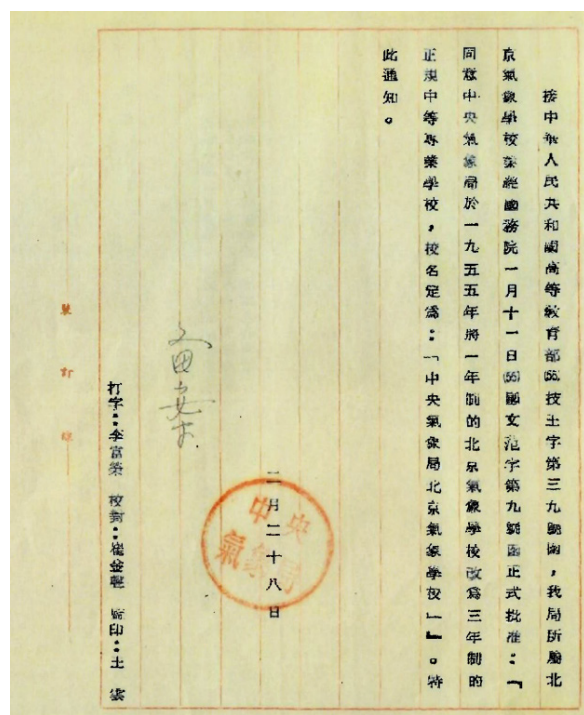 接中華人民共和國高等教育部(55)技土字第三九號函，我局所屬北
京氣象學校業經國務院一月十一日(55)國文范字第九號函正式批准：『
同意中央氣象局於一九五五年將一年制的北京氣象學校改爲三年制的
正規中等專業學校，校名定爲：「中央氣象局北京氣象學校」』。特
此通知。
二月二十八日
中央
氣象局
打字：李富榮 校對：崔金聲 監印：土雲
裝訂綫